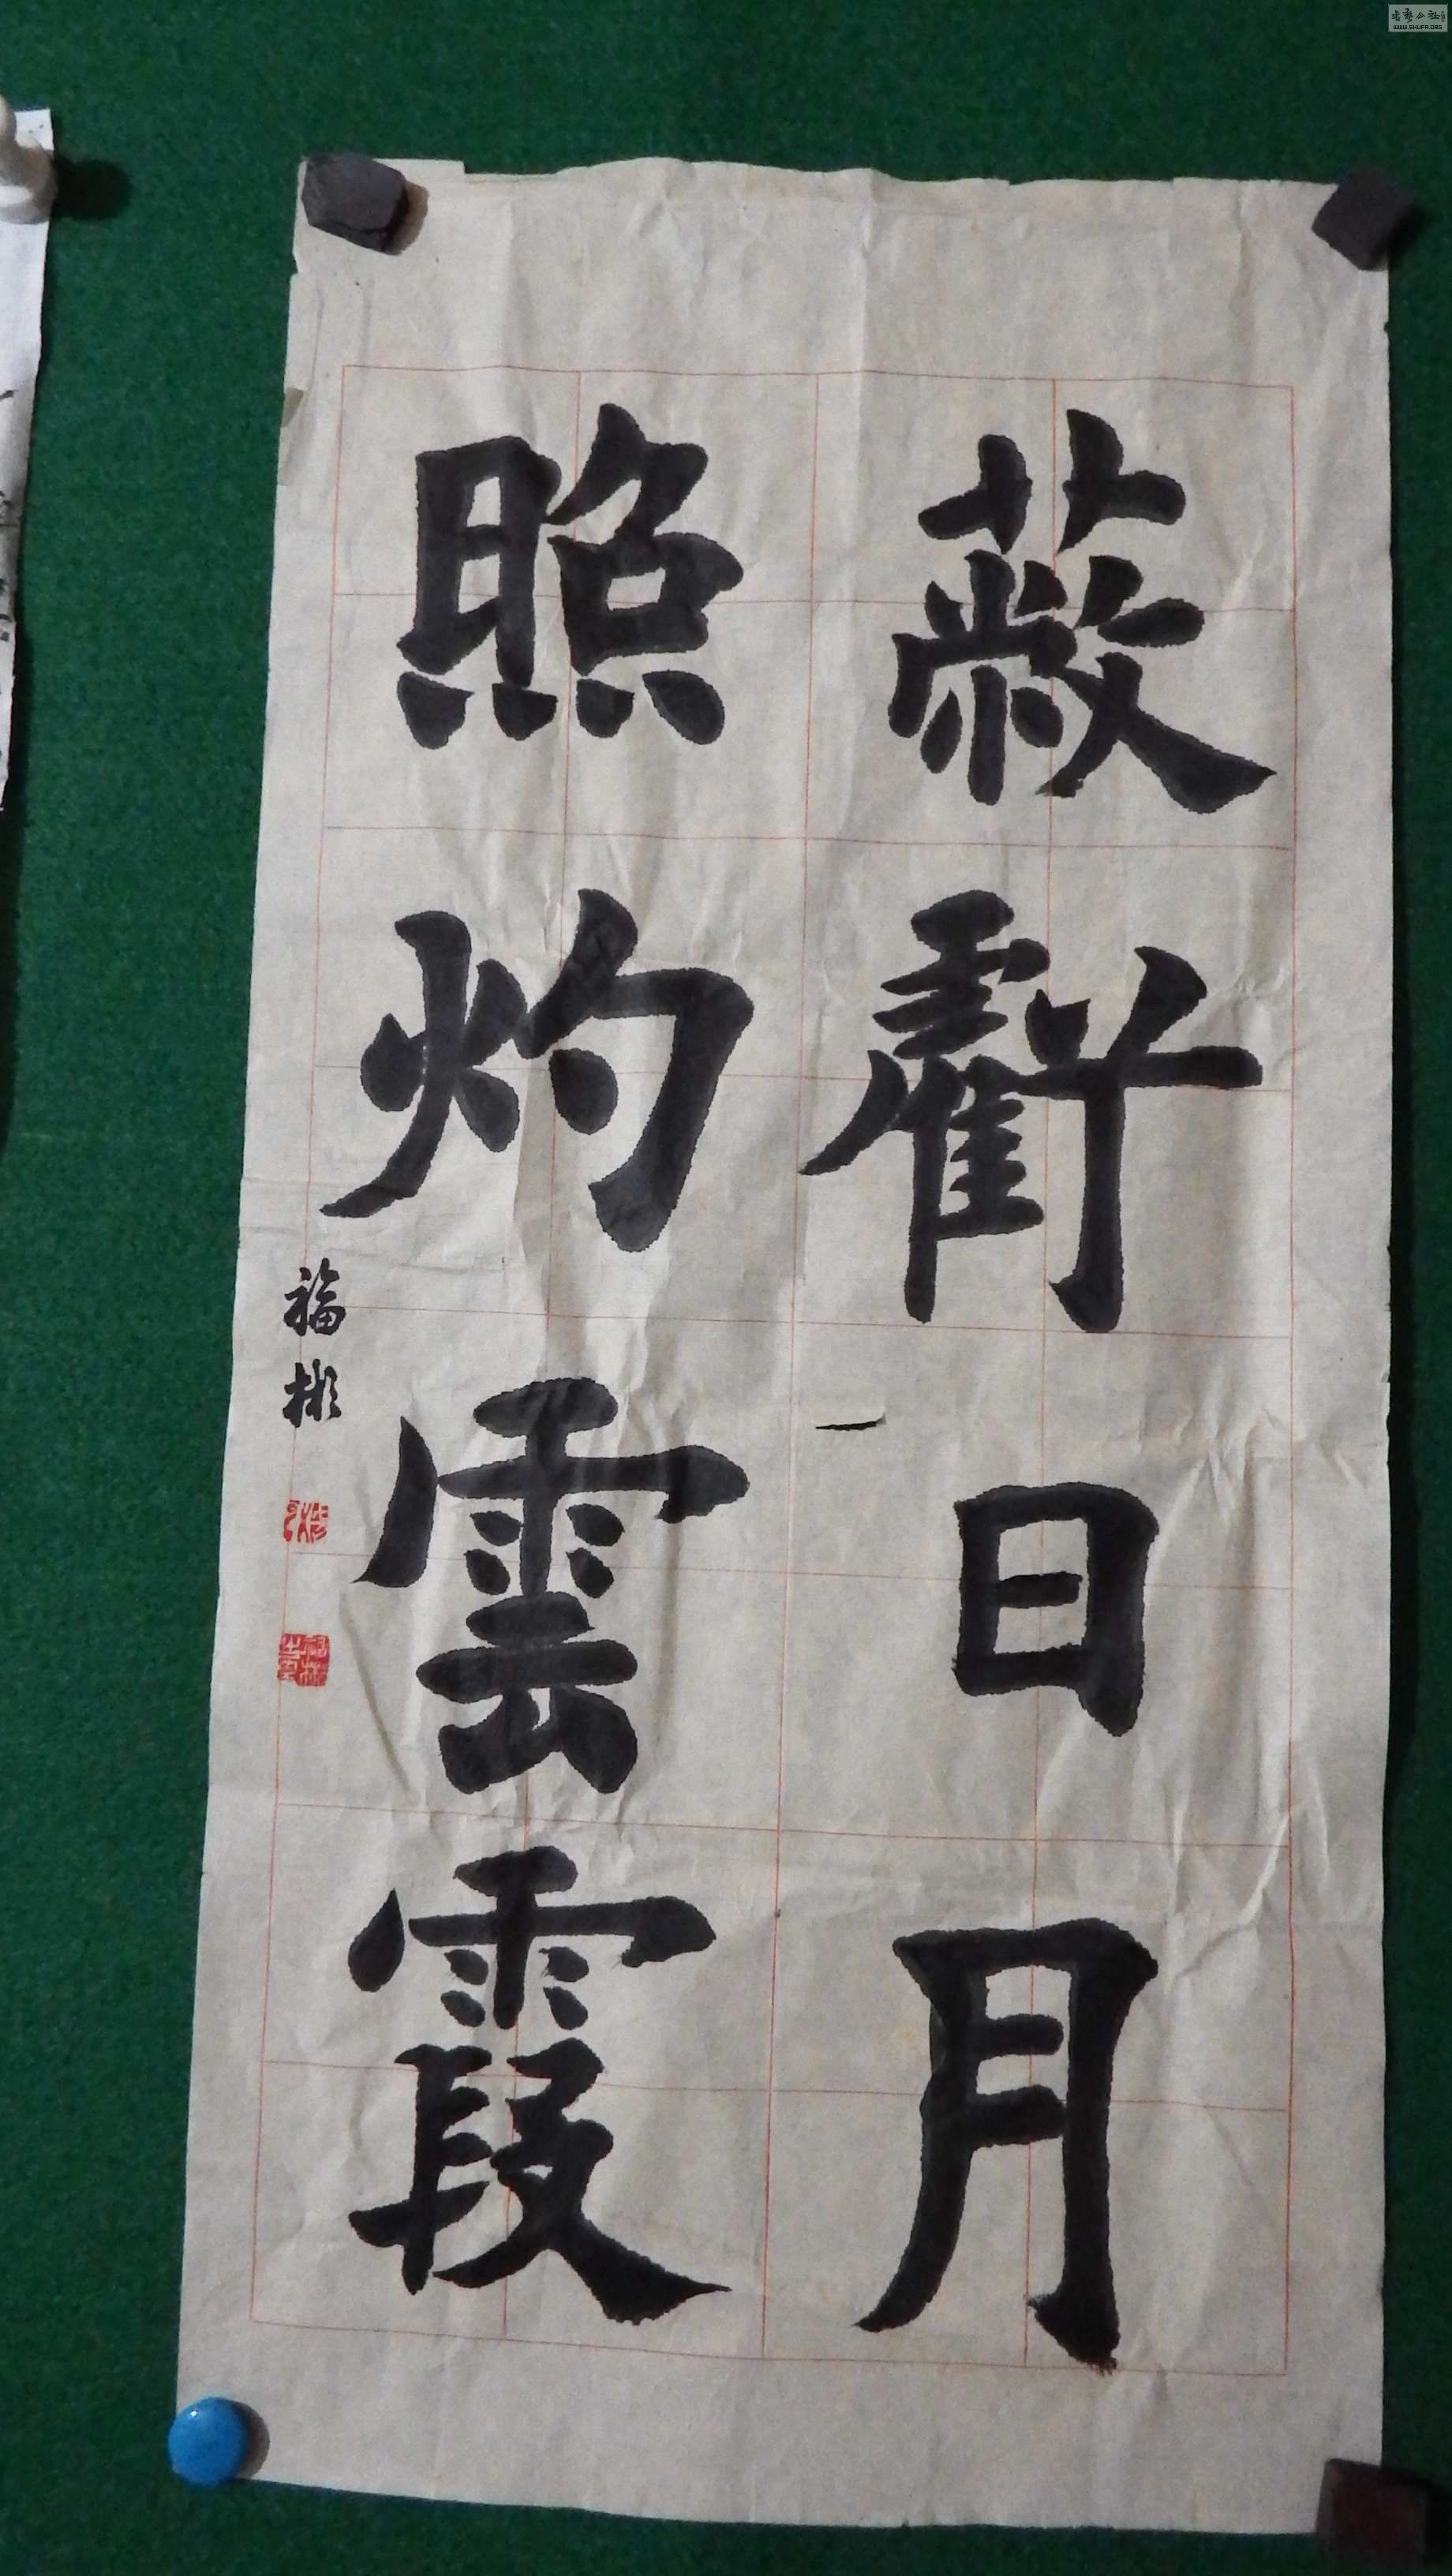 蔽虧日月
照灼雲霞
福彬
WWW.SHUFA.ORG